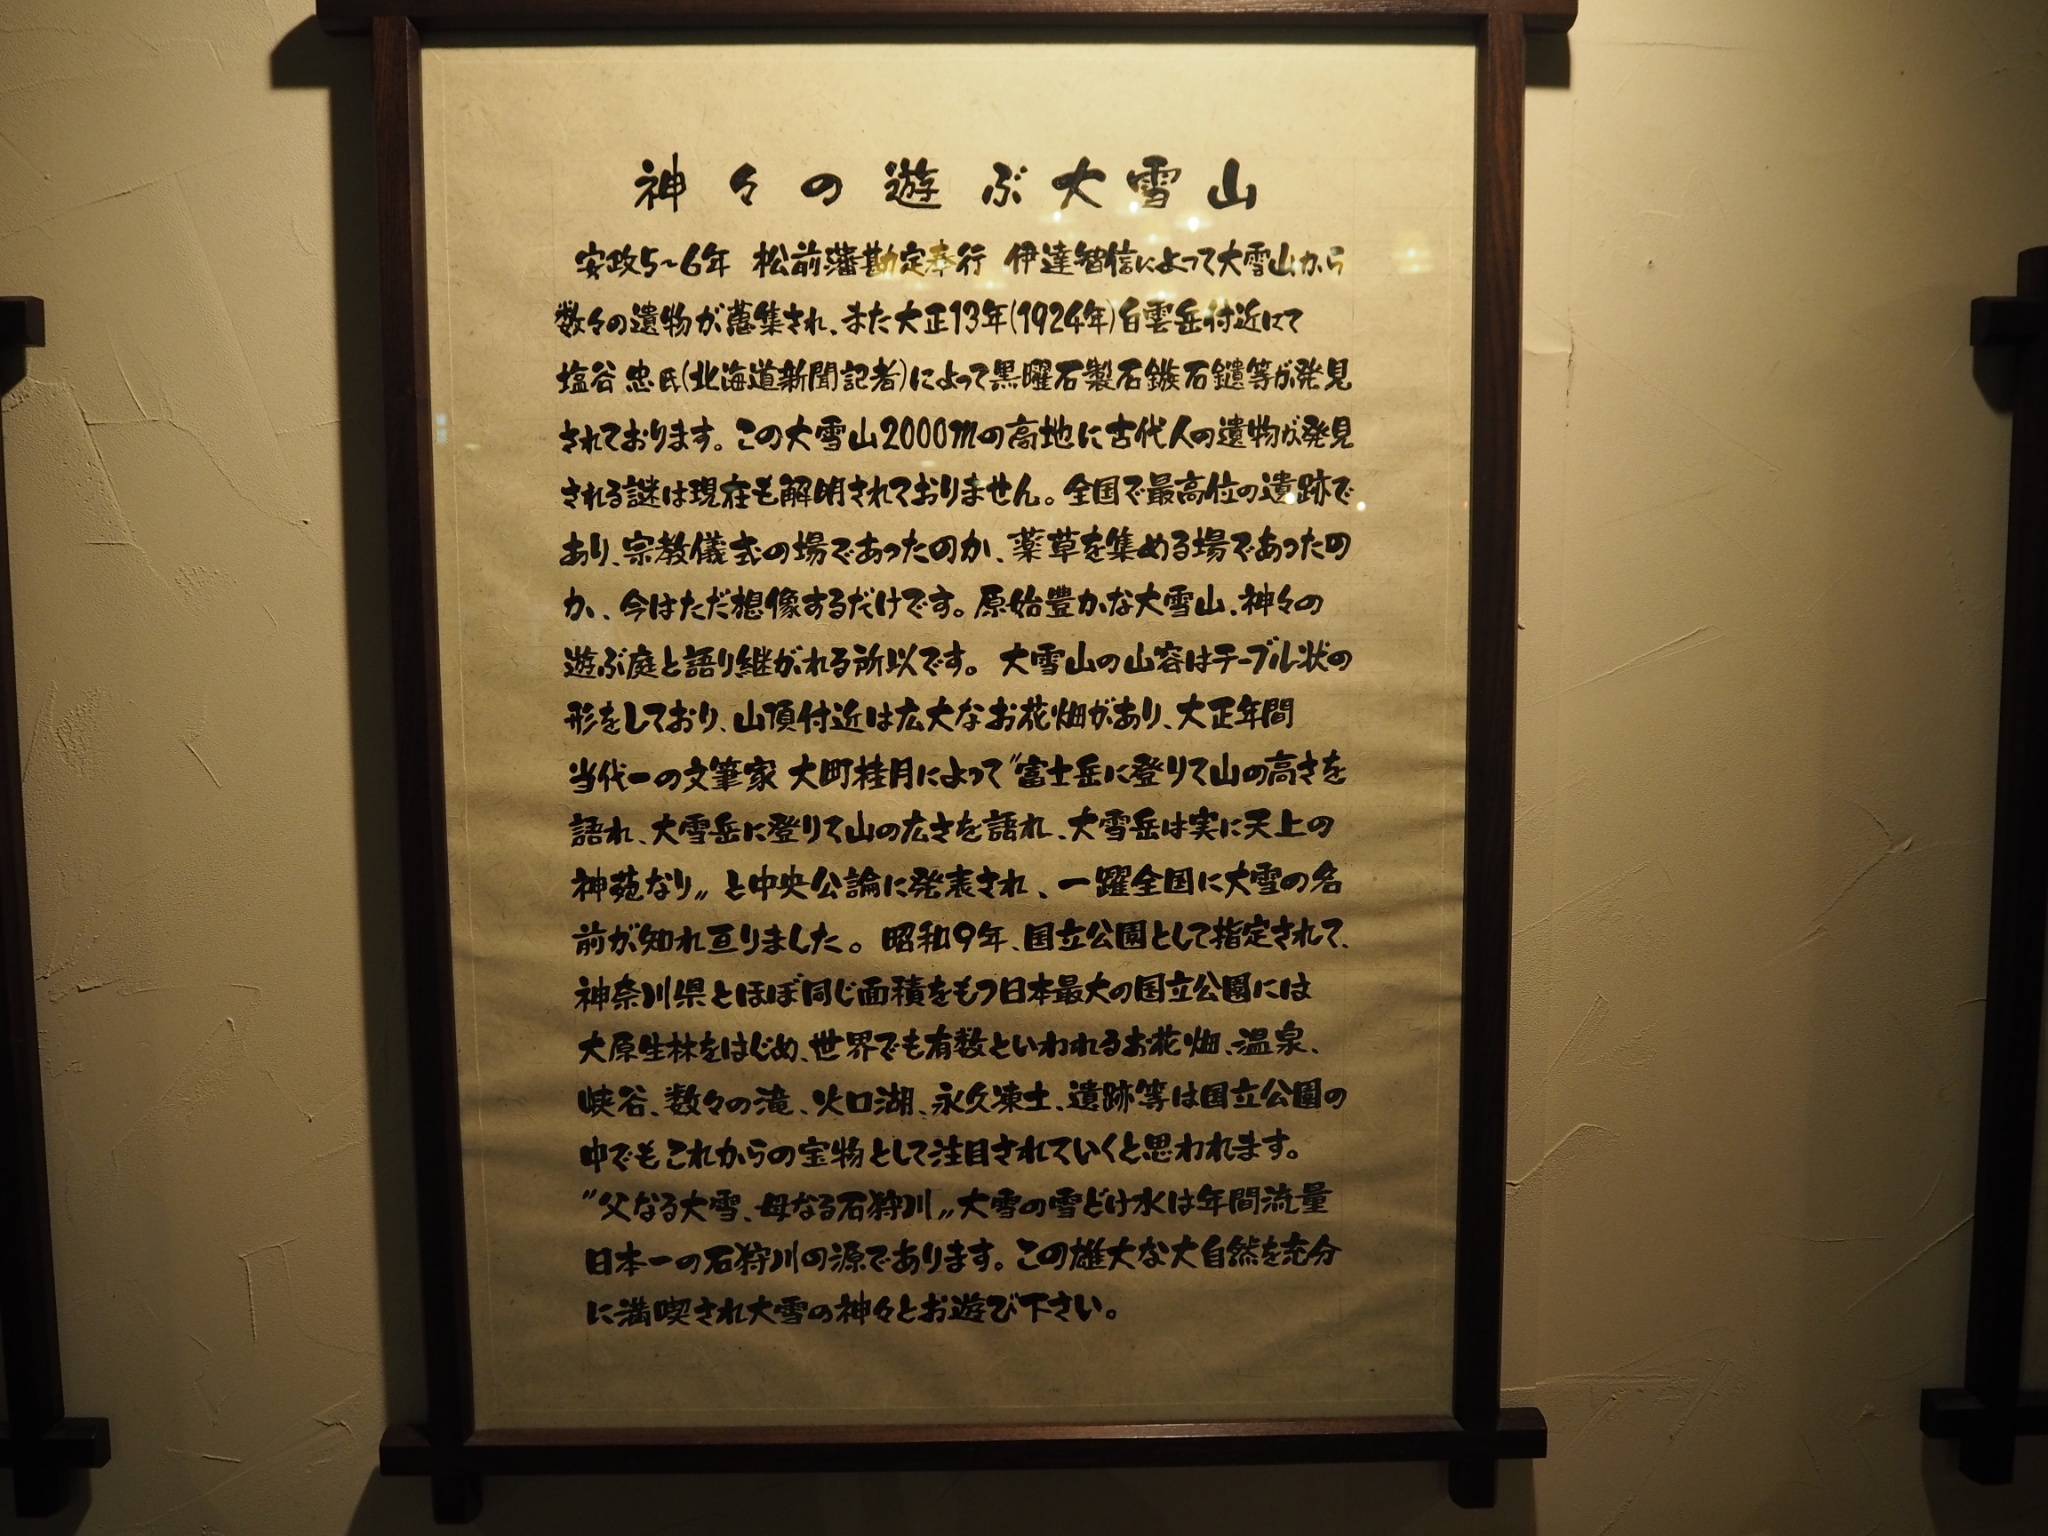 神々の遊ぶ大雪山
安政5~6年 松前藩勘定奉行 伊達智信によって大雪山から
数々の遺物が蒐集され、また大正13年(1924年)白雲岳付近にて
塩谷 忠氏(北海道新聞記者)によって黒曜石製石鏃石鑓等が発見
されております。この大雪山2000mの高地に古代人の遺物が発見
される謎は現在も解明されておりません。全国で最高位の遺跡で
あり、宗教儀式の場であったのか、薬草を集める場であったの
か、今はただ想像するだけです。原始豊かな大雪山、神々の
遊ぶ庭と語り継がれる所以です。 大雪山の山容はテーブル状の
形をしており、山頂付近は広大なお花畑があり、大正年間
当代一の文筆家 大町桂月によって〝富士岳に登りて山の高さを
語れ、大雪岳に登りて山の広さを語れ、大雪岳は実に天上の
神苑なり〟と中央公論に発表され、一躍全国に大雪の名
前が知れ亘りました。昭和9年、国立公園として指定されて、
神奈川県とほぼ同じ面積をもつ日本最大の国立公園には
大原生林をはじめ、世界でも有数といわれるお花畑、温泉、
峡谷、数々の滝、火口湖、永久凍土、遺跡等は国立公園の
中でもこれからの宝物として注目されていくと思われます。
〝父なる大雪、母なる石狩川〟大雪の雪どけ水は年間流量
日本一の石狩川の源であります。この雄大な大自然を充分
に満喫され大雪の神々とお遊び下さい。